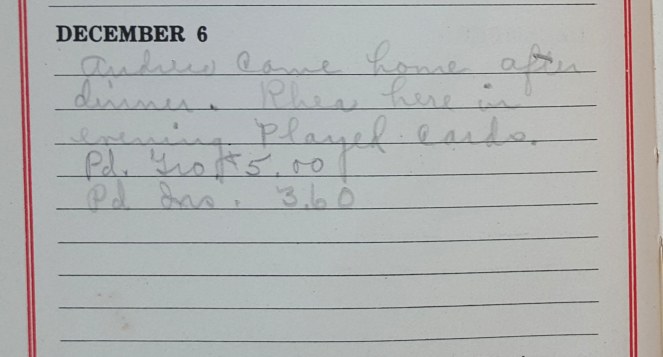 DECEMBER 6
Andrew came home after
dinner. Rhea here in
evening. Played cards.
Pd. Gro $5.00
Pd Ins. 3.60